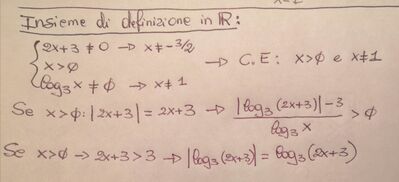 Insieme di definizione in ℝ:
{ 2x+3 ≠ 0 → x ≠ -3/2
x>0
log₃x ≠ 0 → x≠1
→ C.E: x>0 e x≠1
Se x>0: |2x+3| = 2x+3 → (|log₃(2x+3)| - 3)/(log₃x) > 0
Se x>0 → 2x+3 > 3 → |log₃(2x+3)| = log₃(2x+3)